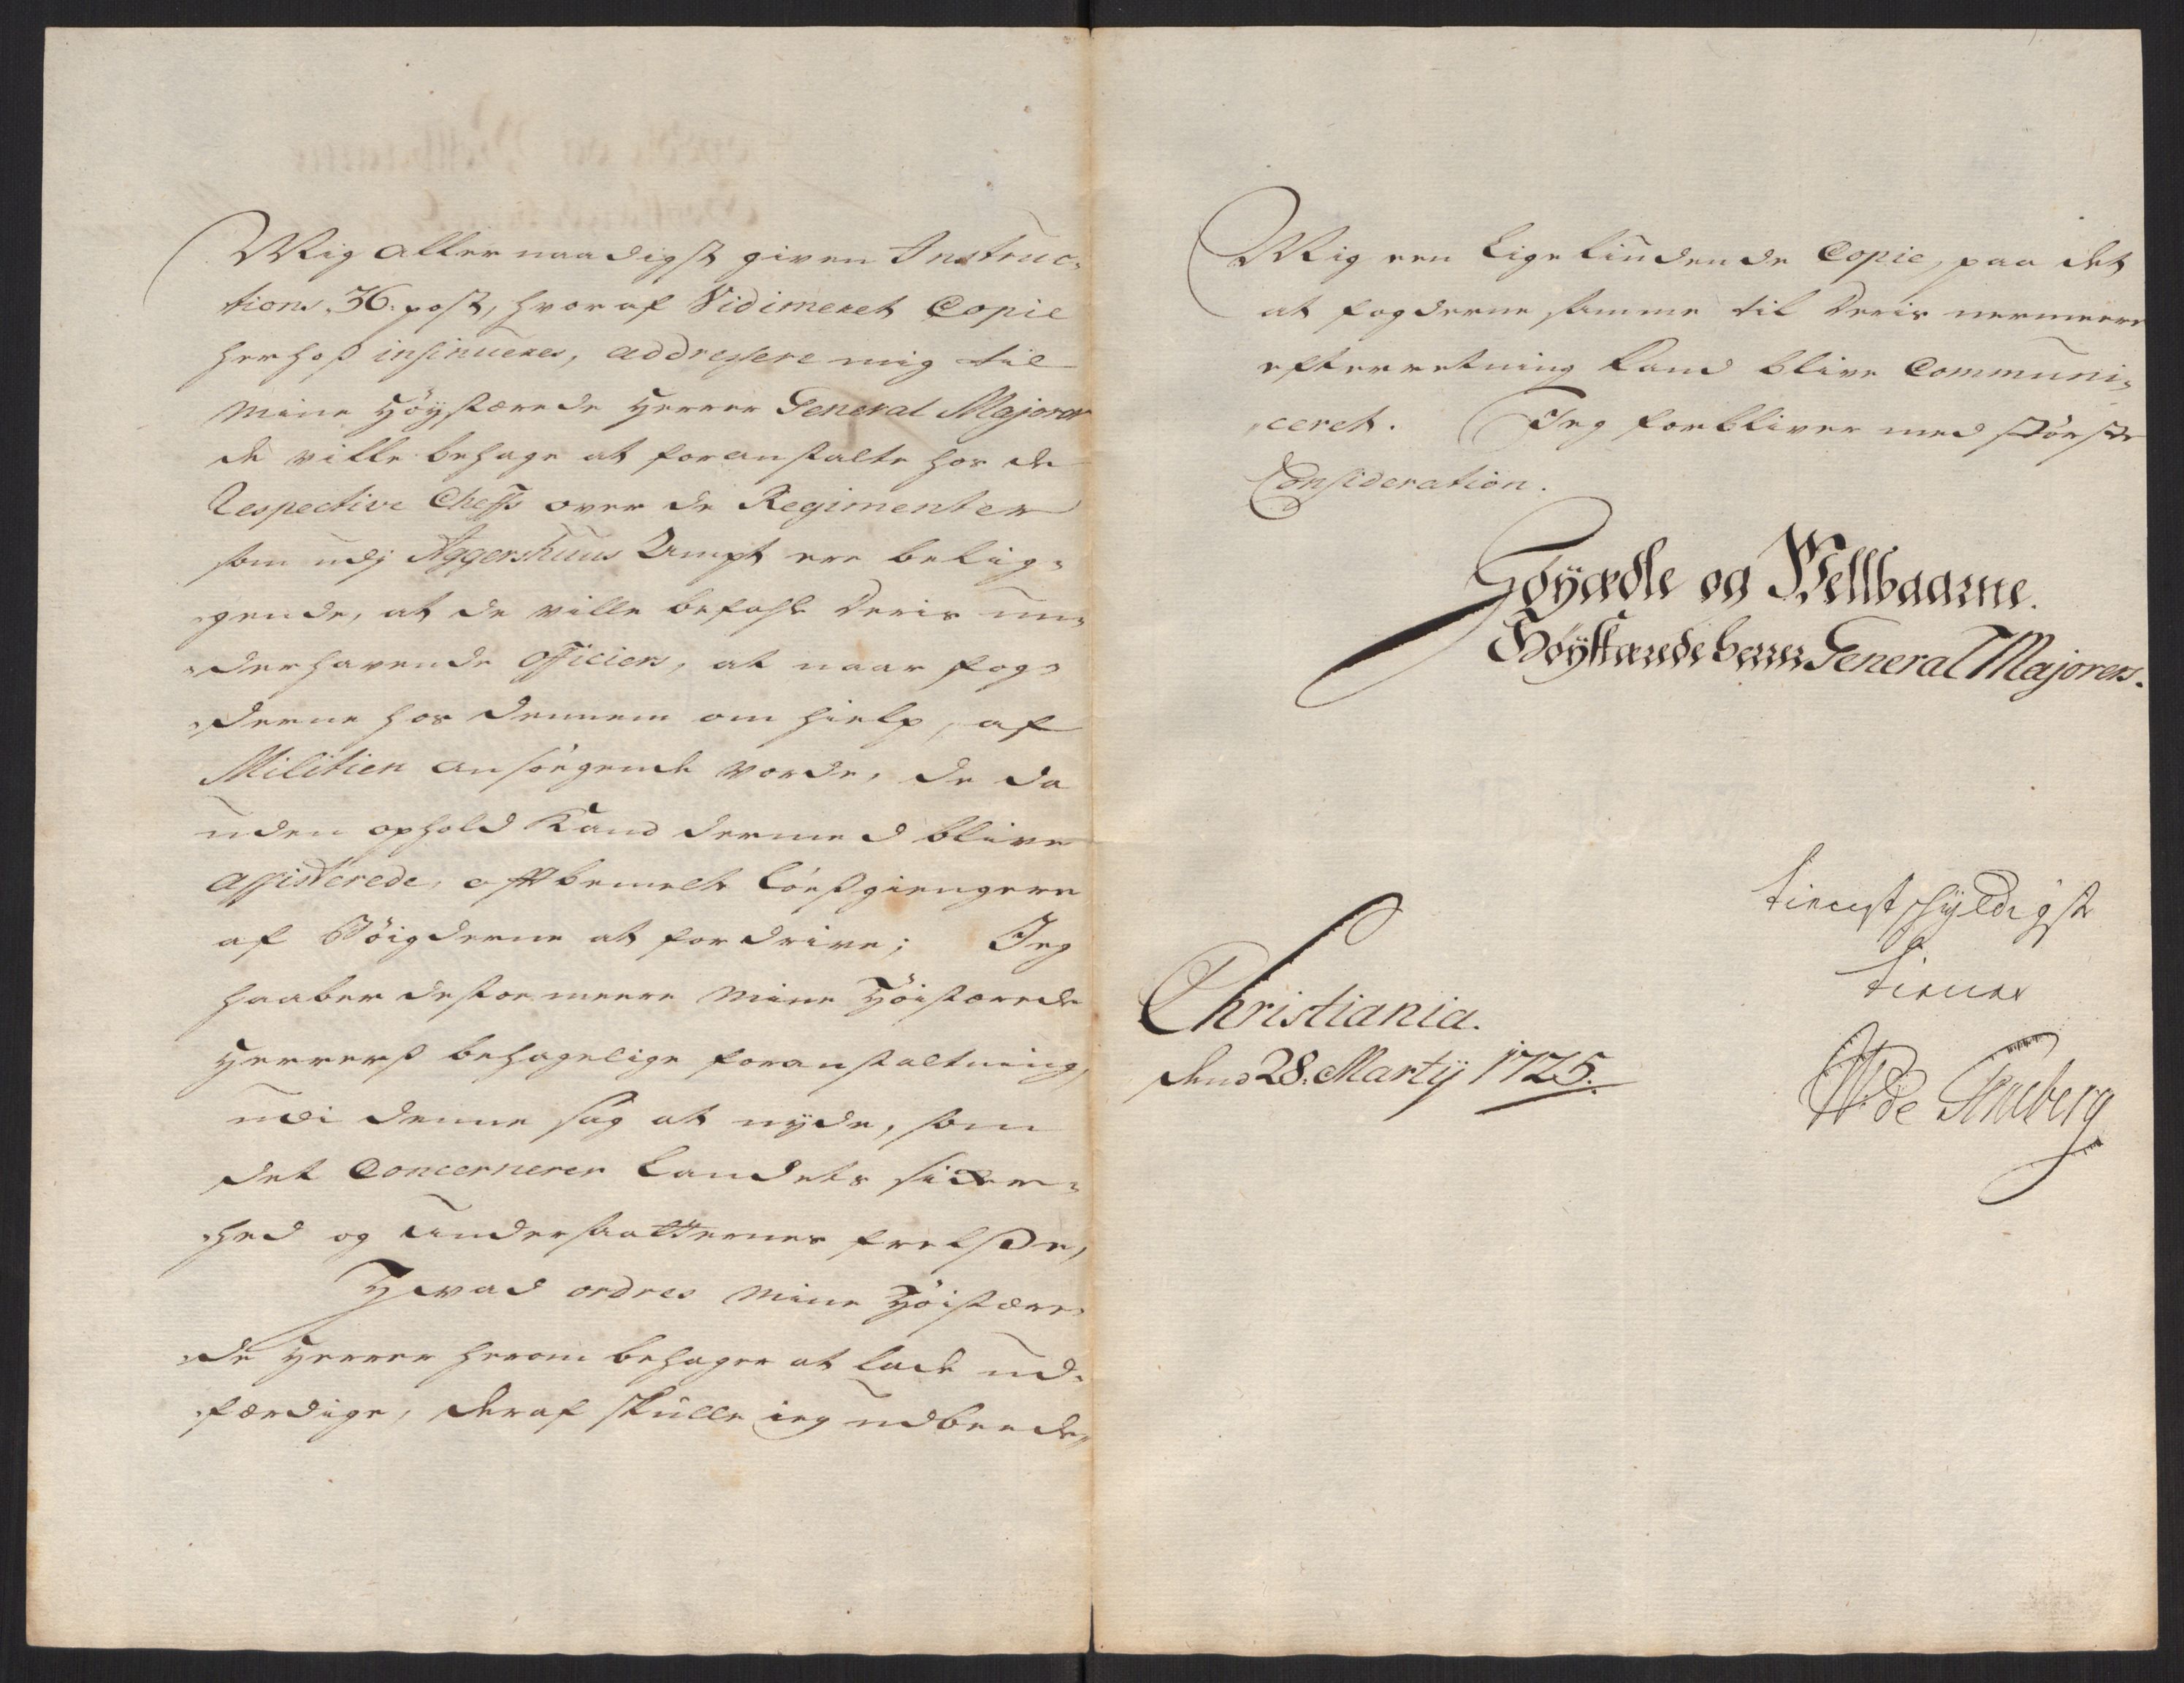 Mig allernaadigst given Instruc-
tions 36. post, hvoraf Vidimeret Copie
herhoß insinueres, addressere mig til
Mine Høystærede Herrer General Majorer
de ville behage at foranstalte hos de
Respective Cheffs over de Regimenter
som udj Aggershuus Ampt ere belig-
gende, at de ville befahle deris un-
derhavende Officiers, at naar fog-
derne hos dennem om hielp, af
Militien ansøgende vorde, de da
uden ophold kand dermed blive
assisterede, oftbemelte løsgiengere
af Bøigderne at fordrive; Jeg
haaber desto meere Mine Høistærede
Herrers behagelige foranstaltning,
udi denne sag at nyde, som
det Concernerer Landets sicker-
hed og Undersaatternes frelse,
Hvad ordres Mine Høistære-
de Herrer herom behager at lade ud-
færdige, deraf skulle ieg udbeede,
Mig een Ligelindende Copie, paa det
at fogderne samme til deris nermeere
efterretning kand blive Communi-
ceret. Jeg forbliver med største
Consideration.
Høyædle og Vellbaarne.
Høystærede herrer General Majorers.
tienstskyldigste
tiener
Christiania.
dend 28. Martij 1725.
W de Tonsberg